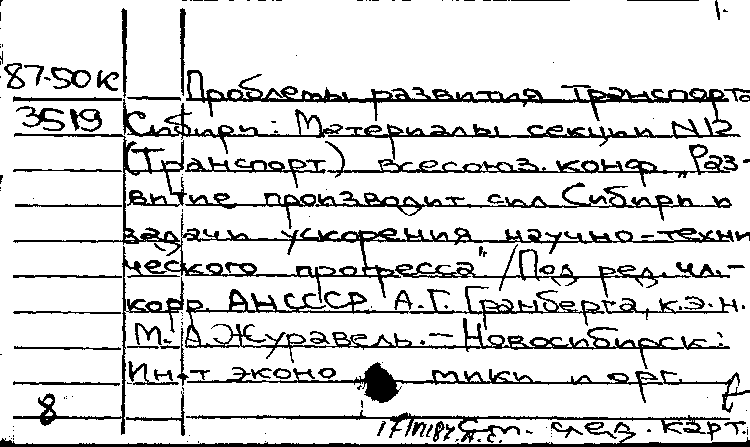 87-50к
Проблемы развития транспорта
3519 Сибири: Материалы секции N12
(Транспорт) всесоюз. конф. „Раз-
витие производит. сил Сибири и
задачи ускорения научно-техни
ческого прогресса" / Под ред. чл.-
корр. АН СССР А.Г. Гранберга, к.э.н.
М.А. Журавель. — Новосибирск:
Ин-т эконо мики и орг.
8
См. след. карт.